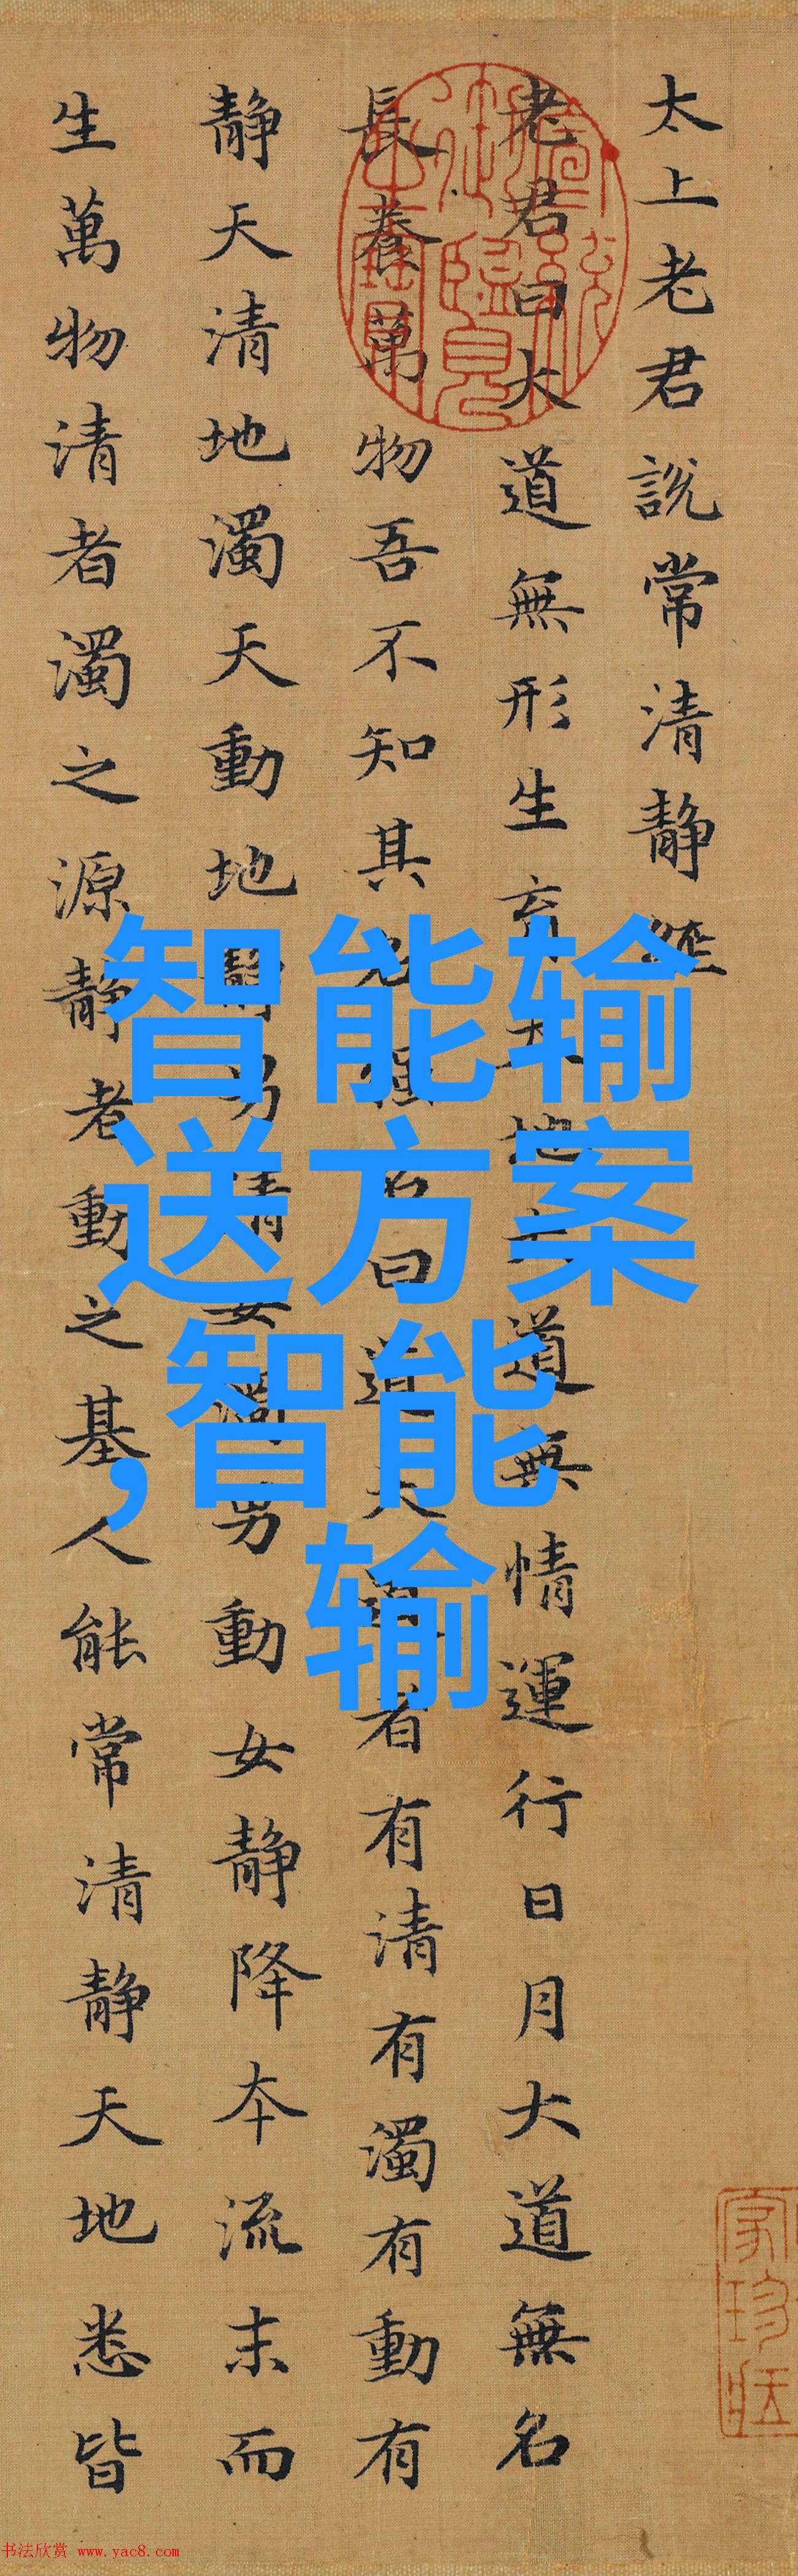 太上老君說常清靜經
老君曰大道無形生育天地大道無情運行日月大道無名
長養萬物吾不知其名強名曰道夫道者有清有濁有動有
靜天清地濁天動地靜男清女濁男動女靜降本流末而
生萬物清者濁之源靜者動之基人能常清靜天地悉皆
智能输
送方案
,智能
输
书法欣赏 www.yac8.com